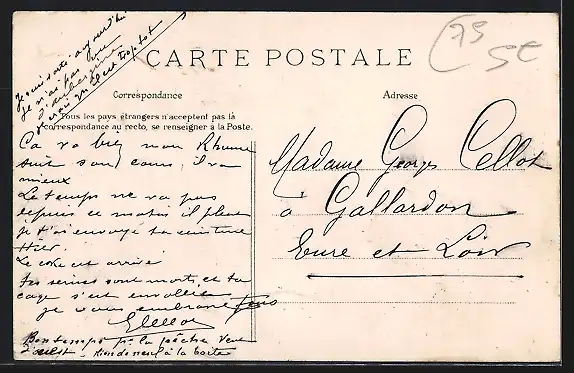 Je suis sorti aujourd'hui
je n'ai pas vu
d'aubergine
je crois qu'il est trop tôt
CARTE POSTALE
75
5€
Correspondance
Adresse
Tous les pays étrangers n'acceptent pas la
correspondance au recto, se renseigner à la Poste.
Ça va bien mon Rhume
suit son cours, il va
mieux
Le temps ne va pas
depuis ce matin il pleut
je t'ai envoyé ta ceinture
Hier.
Le coke est arrivé
tes serines sont morts, et ta
cage s'est envolée
je vous embrasse tous
ECellot
Bon temps pr la pêche vent
d'ouest - Rien de neuf à la boite
Madame Georges Cellot
à Gallardon
Eure et Loir